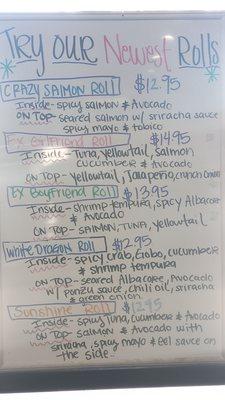 TRY OUR Newest Rolls
CRAZY SALMON ROLL $12.95
Inside- spicy salmon & Avocado
ON TOP- Seared salmon w/ sriracha sauce
spicy mayo & tobico
Ex Girlfriend ROLL $14.95
Inside- Tuna, Yellowtail, Salmon
cucumber & Avocado
ON TOP- Yellowtail, Jalapeño, crunch onion
Ex Boyfriend ROLL $13.95
Inside- shrimp tempura, spicy Albacore
& Avocado
ON TOP- SALMON, TUNA, Yellowtail
White DRAGON ROLL $12.95
Inside- spicy crab, Gobo, cucumber
& shrimp tempura
ON TOP- seared Albacore, Avocado
w/ ponzu sauce, chili oil, sriracha
& green onion
Sunshine ROLL $12.95
Inside- spicy Tuna, cucumber & Avocado
ON TOP- SALMON & Avocado with
sriracha, spicy mayo & eel sauce on
the side.